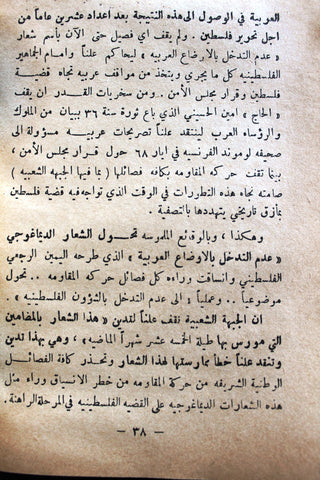 العربية في الوصول الى هذه النتيجة بعد اعداد عشرين عاماً من
اجل تحرير فلسطين . ولم يقف اي فصيل حتى الآن باسم شعار
« عدم التدخل بالاوضاع العربية » ليحاكم علناً وامام الجماهير
الفلسطينيه كل ما يجري ويتخذ من مواقف عربيه تجاه قضية
فلسطين وقرار مجلس الأمن . ومن سخريات القدر ان يقف
« الحاج » امين الحسيني الذي باع ثورة سنة ٣٦ ببيان من الملوك
والرؤساء العرب لينتقد علناً تصريحات عربيه مسؤولة الى
صحيفه لوموند الفرنسيه في ايار ٦٨ حول قرار مجلس الأمن ،
بينما تقف حركه المقاومه بكافه فصائلها ( بما فيها الجبهه الشعبيه )
صامته تجاه هذه التطورات في الوقت الذي تواجه فيه قضية فلسطين
بمأزق تاريخي يتهددها بالتصفية .
وهكذا ، وبالوقائع الملموسه تحول الشعار الديماغوجي
« عدم التدخل بالاوضاع العربية » الذي طرحه اليمين الرجعي
الفلسطيني وانساقت وراءه كل فصائل حركه المقاومه .. تحول
موضوعياً .. وعملياً « الى عدم التدخل بالشؤون الفلسطينيه » .
ان الجبهة الشعبية تقف علناً لتدين « هذا الشعار بالمضامين
التي مورس بها طيلة الخمسه عشر شهراً الماضيه » ، وهي بهذا تدين
وتنقد علناً خطأ ممارستها لهذا الشعار وتحذر كافة الفصائل
الوطنية الشريفه من حركة المقاومه من خطر الانسياق وراء مثل
هذه الشعارات الديماغوجيه على القضيه الفلسطينيه في المرحلة الراهنة.
— ٣٨ —